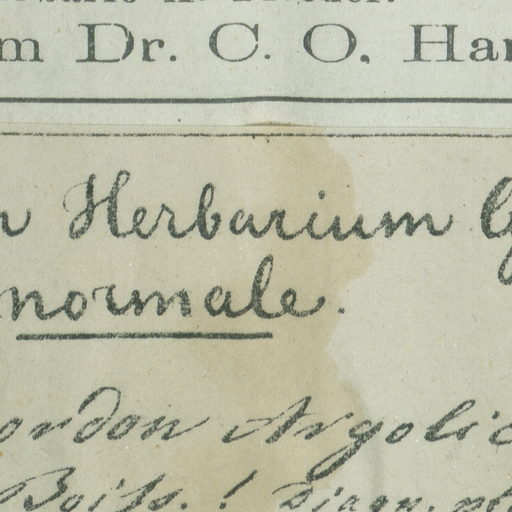 m Dr. C. O. Har
Herbarium
normale.
ordon Argolic
Boiss. ! Diagn. pl